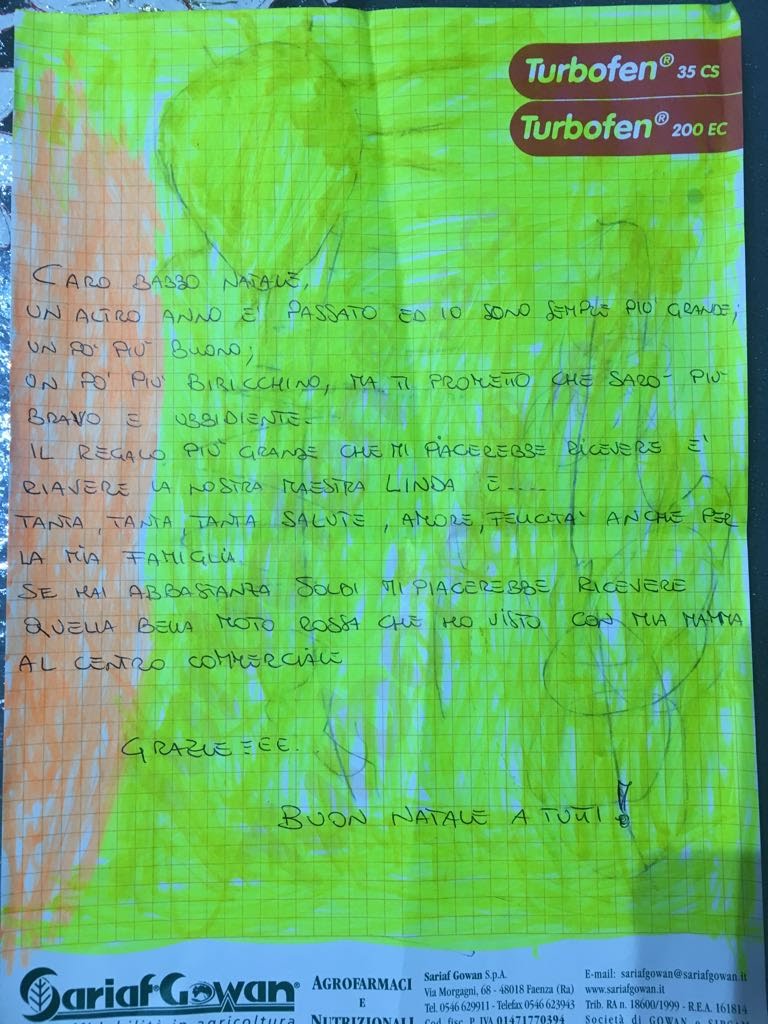 Turbofen® 35 CS
Turbofen® 200 EC
CARO BABBO NATALE,
UN ALTRO ANNO E' PASSATO ED IO SONO SEMPRE PIU' GRANDE;
UN PO' PIU' BUONO;
UN PO' PIU' BIRICCHINO, MA TI PROMETTO CHE SARO' PIU'
BRAVO E UBBIDIENTE.
IL REGALO PIU' GRANDE CHE MI PIACEREBBE RICEVERE E'
RIAVERE LA NOSTRA MAESTRA LINDA E....
TANTA, TANTA TANTA SALUTE, AMORE, FELICITA' ANCHE PER
LA MIA FAMIGLIA.
SE HAI ABBASTANZA SOLDI MI PIACEREBBE RICEVERE
QUELLA BELLA MOTO ROSSA CHE HO VISTO CON MIA MAMMA
AL CENTRO COMMERCIALE
GRAZIE EEE.
BUON NATALE A TUTTI!
Sariaf Gowan®
AGROFARMACI
E
NUTRIZIONALI
Sariaf Gowan S.p.A.
Via Morgagni, 68 - 48018 Faenza (Ra)
Tel. 0546 629911 - Telefax 0546 623943
Cod. fisc. P. IVA 01471770394
E-mail: sariafgowan@sariafgowan.it
www.sariafgowan.it
Trib. RA n. 18600/1999 - R.E.A. 161814
Società di GOWAN
in agricoltura